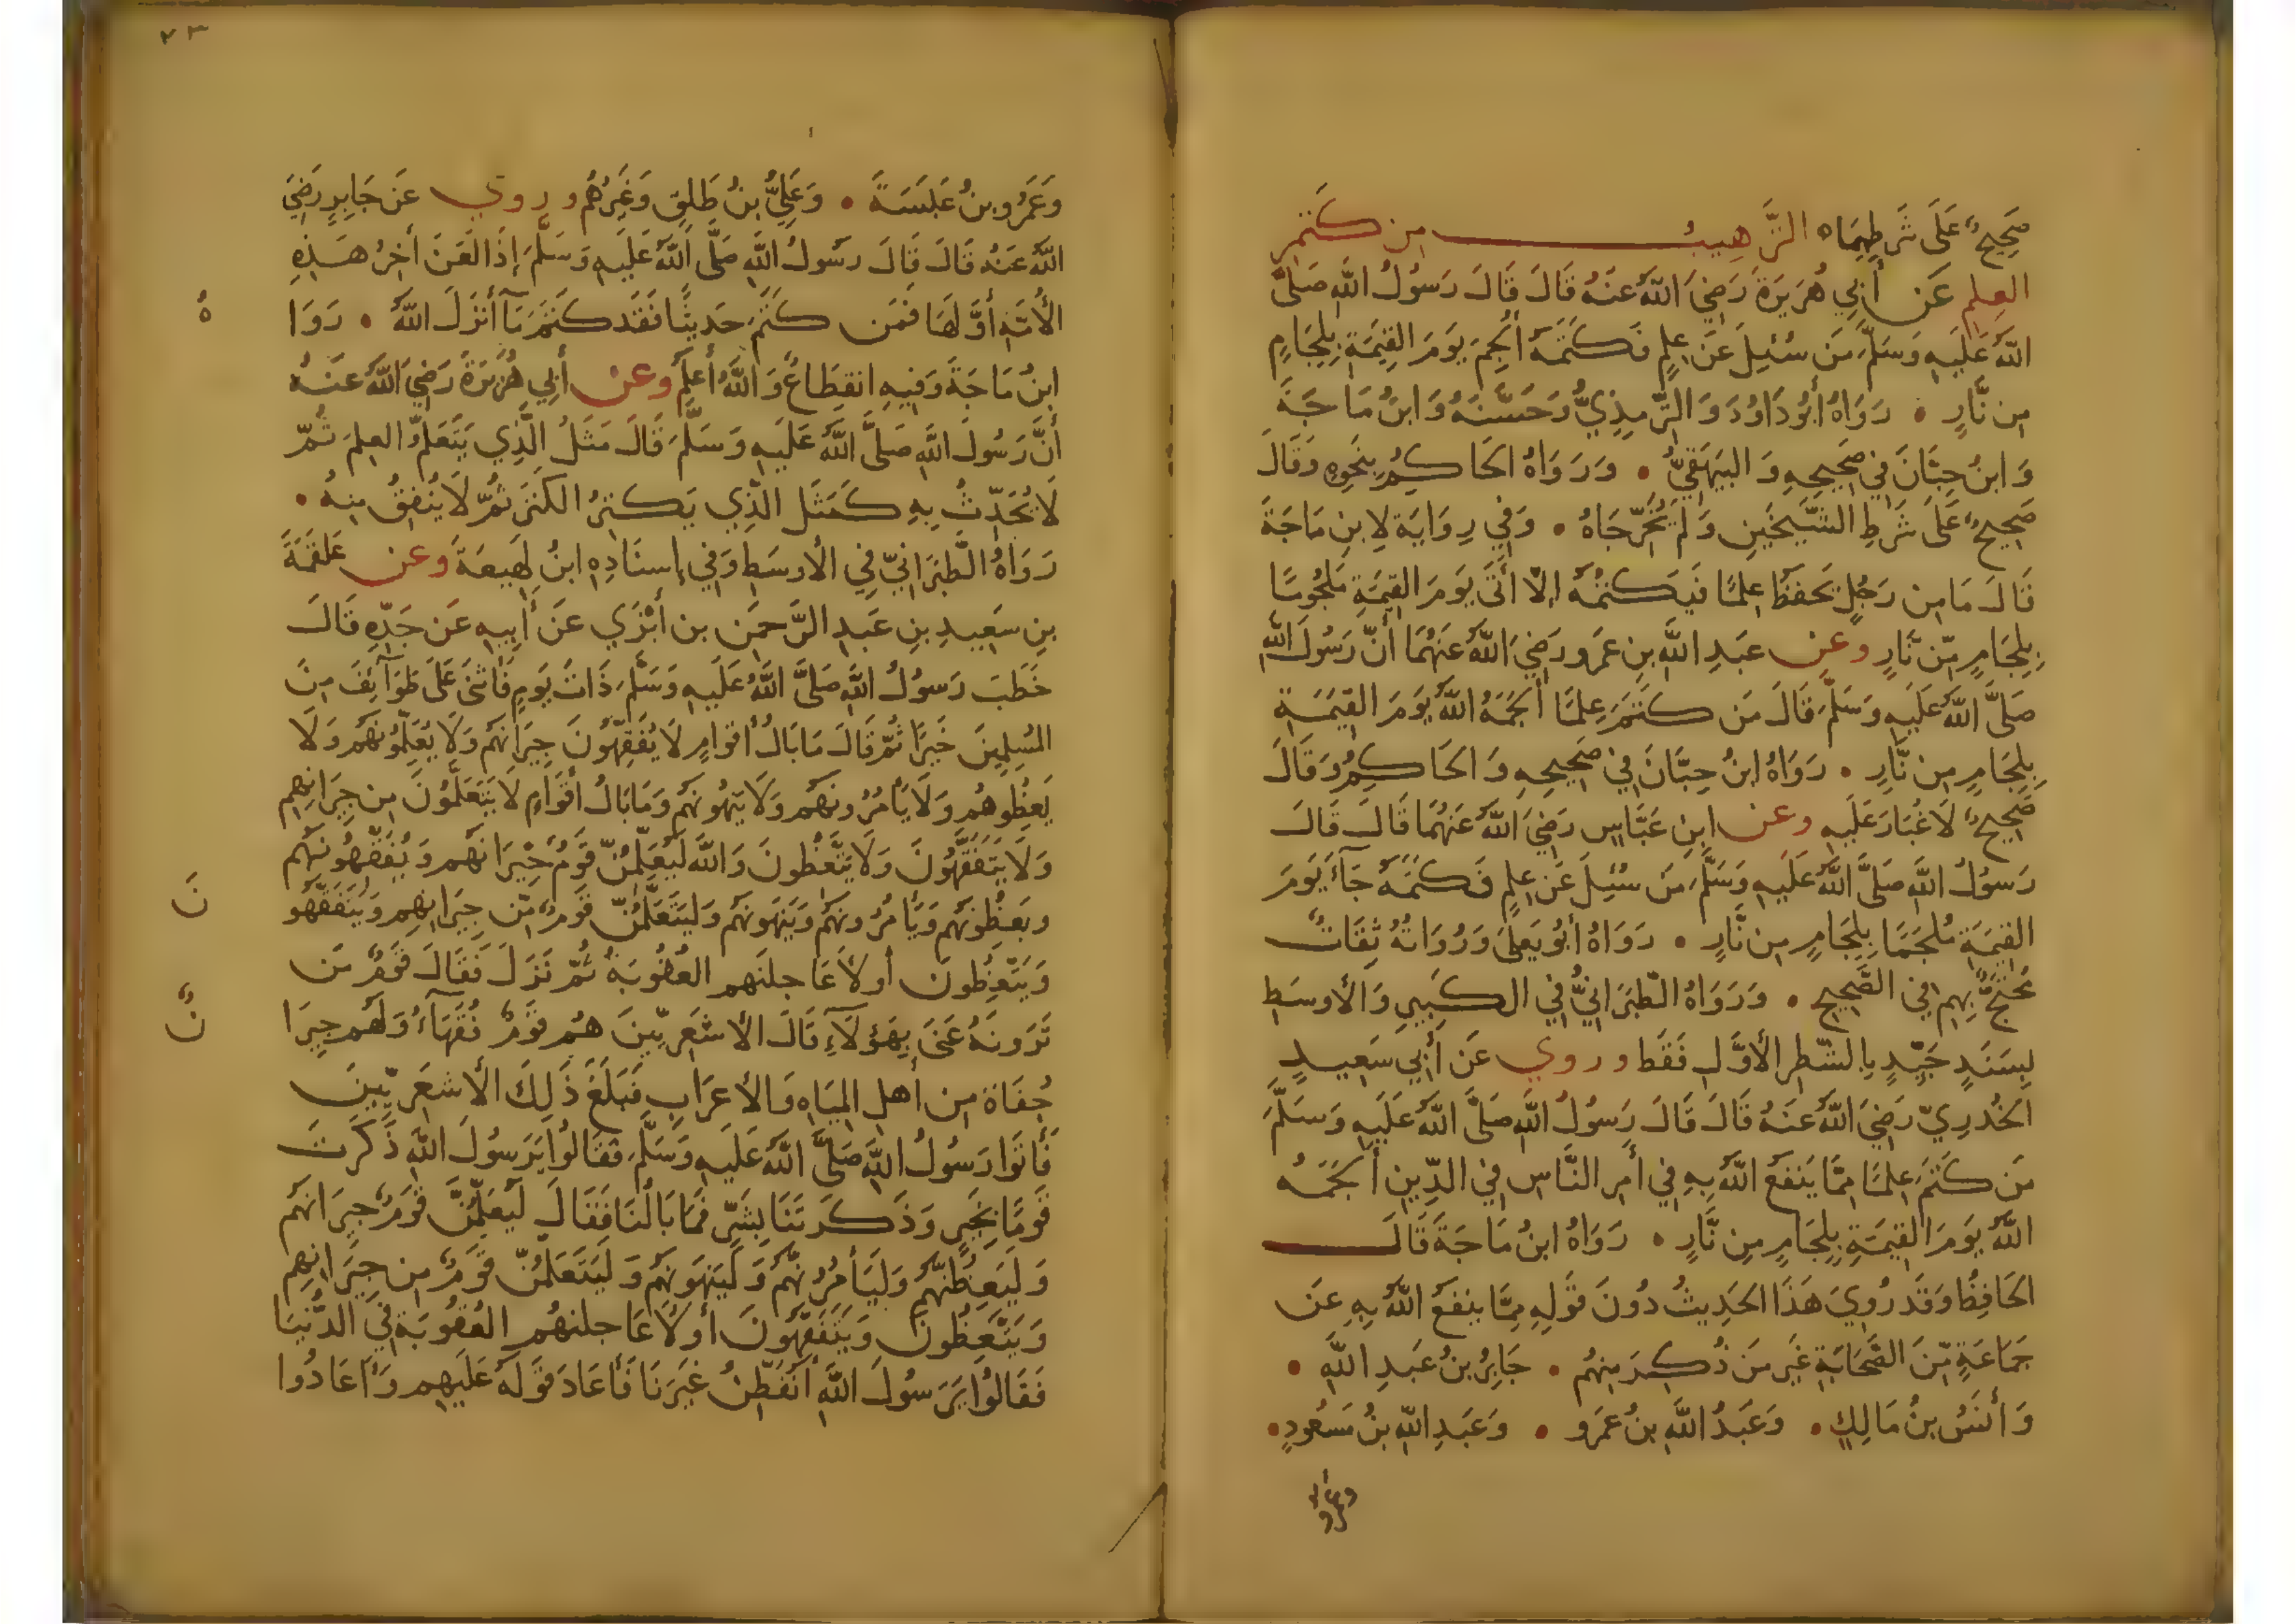 صَحِيحٌ عَلَى شَرطِهِمَا ه التَّرهِيبُ مِن كَتمِ
العِلمِ عَن أَبِي هُرَيرَةَ رَضِيَ اللَّهُ عَنهُ قَالَ قَالَ رَسُولُ اللَّهِ صَلَّى
اللَّهُ عَلَيهِ وَسَلَّمَ مَن سُئِلَ عَن عِلمٍ فَكَتَمَهُ أُلجِمَ يَومَ القِيٰمَةِ بِلِجَامٍ
مِن نَّارٍ • رَوَاهُ أَبُو دَاوُدَ وَالتِّرمِذِيُّ وَحَسَّنَهُ وَابنُ مَاجَةَ
وَابنُ حِبَّانَ فِي صَحِيحِهِ وَالبَيهَقِيُّ • وَرَوَاهُ الحَاكِمُ بِنَحوِهِ وَقَالَ
صَحِيحٌ عَلَى شَرطِ الشَّيخَينِ وَلَم يُخَرِّجَاهُ • وَفِي رِوَايَة لِابنِ مَاجَةَ
قَالَ مَا مِن رَجُلٍ يَحفَظُ عِلمًا فَيَكتُمُهُ إِلَّا أَتَى يَومَ القِيٰمَةِ مَلجُومًا
بِلِجَامٍ مِّن نَّارٍ وعن عَبدِ اللَّهِ بنِ عَمرو رَضِيَ اللَّهُ عَنهُمَا أَنَّ رَسُولَ اللَّهِ
صَلَّى اللَّهُ عَلَيهِ وَسَلَّمَ قَالَ مَن كَتَمَ عِلمًا أَلجَمَهُ اللَّهُ يَومَ القِيٰمَةِ
بِلِجَامٍ مِن نَّارٍ • رَوَاهُ ابنُ حِبَّانَ فِي صَحِيحِهِ وَالحَاكِمُ وَقَالَ
صَحِيحٌ لَا غُبَارَ عَلَيهِ وعن ابنِ عَبَّاسٍ رَضِيَ اللَّهُ عَنهُمَا قَالَ قَالَ
رَسُولُ اللَّهِ صَلَّى اللَّهُ عَلَيهِ وَسَلَّمَ مَن سُئِلَ عَن عِلمٍ فَكَتَمَهُ جَآءَ يَومَ
القِيٰمَةِ مُلجَمًا بِلِجَامٍ مِن نَّارٍ • رَوَاهُ أَبُو يَعلَى وَرُوَاتُهُ ثِقَاتٌ
مُحتَجٌّ بِهِم فِي الصَّحِيحِ • وَرَوَاهُ الطَّبَرَانِيُّ فِي الكَبِيرِ وَالأَوسَطِ
بِسَنَدٍ جَيِّدٍ بِالشَّطرِ الأَوَّلِ فَقَط وروي عَن أَبِي سَعِيدٍ
الخُدرِيّ رَضِيَ اللَّهُ عَنهُ قَالَ قَالَ رَسُولُ اللَّهِ صَلَّى اللَّهُ عَلَيهِ وَسَلَّمَ
مَن كَتَمَ عِلمًا مِمَّا يَنفَعُ اللَّهُ بِهِ فِي أَمرِ النَّاسِ فِي الدِّينِ أَلجَمَهُ
اللَّهُ يَومَ القِيٰمَةِ بِلِجَامٍ مِن نَّارٍ • رَوَاهُ ابنُ مَاجَةَ قَالَ
الحَافِظُ وَقَد رُوِيَ هَذَا الحَدِيثُ دُونَ قَولِهِ مِمَّا يَنفَعُ اللَّهُ بِهِ عَن
جَمَاعَةٍ مِّنَ الصَّحَابَةِ غَيرَ مَن ذُكِرَ مِنهُم • جَابِرُ بنُ عَبدِ اللَّهِ •
وَأَنَسُ بنُ مَالِكٍ • وَعَبدُ اللَّهِ بنُ عَمرو • وَعَبدِ اللَّهِ بنُ مَسعُودٍ •
وعمرو
٢٣
وَعَمرُو بنُ عَبَسَةَ • وَعَلِيُّ بنُ طَلقٍ وَغَيرُهُم وروي عَن جَابِرٍ رَضِيَ
اللَّهُ عَنهُ قَالَ قَالَ رَسُولُ اللَّهِ صَلَّى اللَّهُ عَلَيهِ وَسَلَّمَ إِذَا لَعَنَ أَخِرُ هَـذِهِ
الأُمَّةِ أَوَّلَهَا فَمَن كَتَمَ حَدِيثًا فَقَد كَتَمَ مَآ أَنزَلَ اللَّهُ • رَوَا
هُ
ابنُ مَاجَةَ وَفِيهِ انقِطَاعٌ وَاللَّهُ أَعلَم وعن أَبِي هُرَيرَةَ رَضِيَ اللَّهُ عَنهُ
أَنَّ رَسُولَ اللَّهِ صَلَّى اللَّهُ عَلَيهِ وَسَلَّمَ قَالَ مَثَلُ الَّذِي يَتَعَلَّمُ العِلمَ ثُمَّ
لَا يُحَدِّثُ بِهِ كَمَثَلِ الَّذِي يَكنِزُ الكَنزَ ثُمَّ لَا يُنفِقُ مِنهُ •
رَوَاهُ الطَّبَرَانِيّ فِي الأَوسَطِ وَفِي إِسنَادِهِ ابنُ لَهِيعَةَ وعن عَلقَمَةَ
بنِ سَعِيدِ بنِ عَبدِ الرَّحمَنِ بن أَبْزَي عَن أَبِيهِ عَن جَدِّهِ قَالَ
خَطَبَ رَسُولُ اللَّهِ صَلَّى اللَّهُ عَلَيهِ وَسَلَّمَ ذَاتَ يَومٍ فَأَثنَى عَلَى طَوَآئِفَ مِنَ
المُسلِمِينَ خَيرًا ثُمَّ قَالَ مَا بَالُ أَقوَامٍ لَا يُفَقِّهُونَ جِيرَانَهُم وَلَا يُعَلِّمُونَهُم وَلَا
يَعِظُوهُم وَلَا يَأمُرُونَهُم وَلَا يَنهُونَهُم وَمَا بَالُ أَقوَامٍ لَا يَتَعَلَّمُونَ مِن جِيرَانِهِم
وَلَا يَتَفَقَّهُونَ وَلَا يَتَّعِظُونَ وَاللَّهِ لَيُعَلِّمُنَّ قَومٌ جِيرَانَهُم وَيُفَقِّهُونَهُم
وَيَعِظُونَهُم وَيَأمُرُونَهُم وَيَنهَونَهُم وَلَيَتَعَلَّمُنَّ قَومٌ مِّن جِيرَانِهِم وَيَتَفَقَّهُو
نَ
وَيَتَّعِظُونَ أَو لَأُعَاجِلَنَّهُم العُقُوبَةَ ثُمَّ نَزَلَ فَقَالَ قَومٌ مَن
تَرَونَهُ عَنَى بِهَؤُلَآءِ قَالَ الأَشعَرِيِّينَ هُم قَومٌ فُقَهَآءُ وَلَهُم جِيرَا
نٌ
جُفَاة مِن أَهلِ المِيَاهِ وَالأَعرَابِ فَبَلَغَ ذَلِكَ الأَشعَرِيِّينَ
فَأَتَوا رَسُولُ اللَّهِ صَلَّى اللَّهُ عَلَيهِ وَسَلَّمَ فَقَالُوا يَرَسُولَ اللَّهِ ذَكَرتَ
قَومًا بِخَيرٍ وَذَكَرتَنَا بِشَرٍّ فَمَا بَالُنَا فَقَالَ لَيُعَلِّمُنَّ قَومٌ جِيرَانَهُم
وَلَيَعِظُنَّهُم وَلَيَأمُرُنَّهُم وَلَيَنهَونَهُم وَلَيَتَعَلَّمُنَّ قَومٌ مِن جِيرَانِهِم
وَيَتَّعِظُونَ وَيَتَفَقَّهُونَ أَو لَأُعَاجِلَنَّهُم العُقُوبَةَ فِي الدُّنيَا
فَقَالُوا يَرَسُولَ اللَّهِ أَنُفَطِّنُ غَيرَنَا فَأَعَادَ قَولَهُ عَلَيهِم وَأَعَادُوا